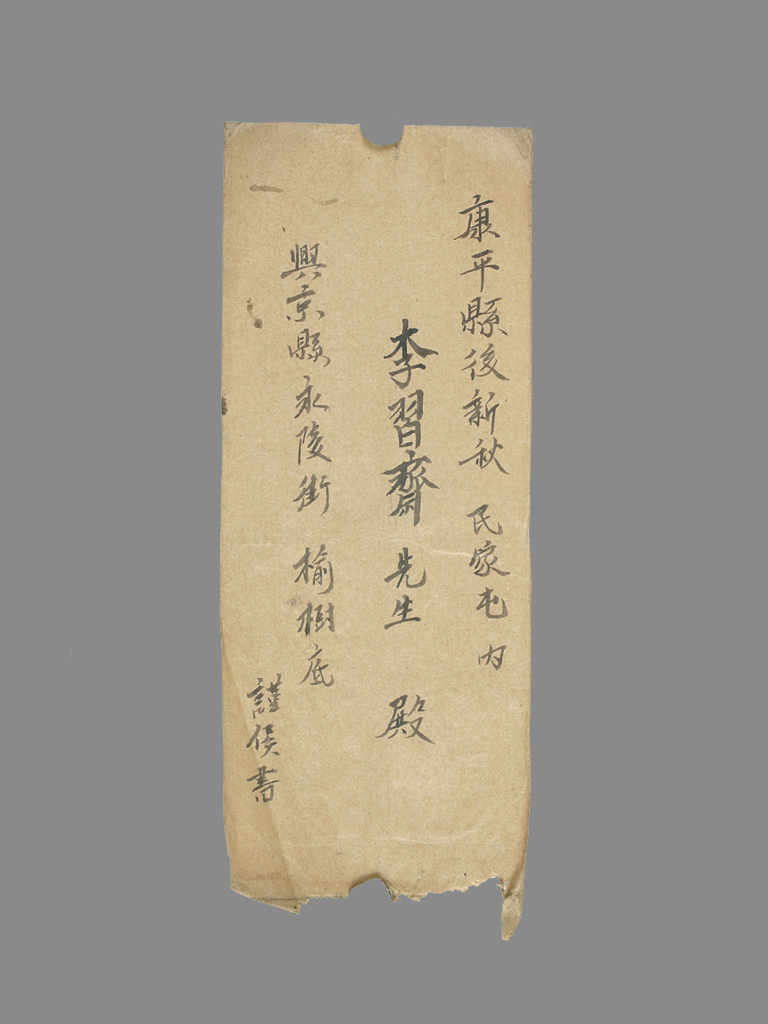 康平縣後新秋 民家屯内
李習齋先生 殿
興京縣永陵街 榆樹底
謹侯書